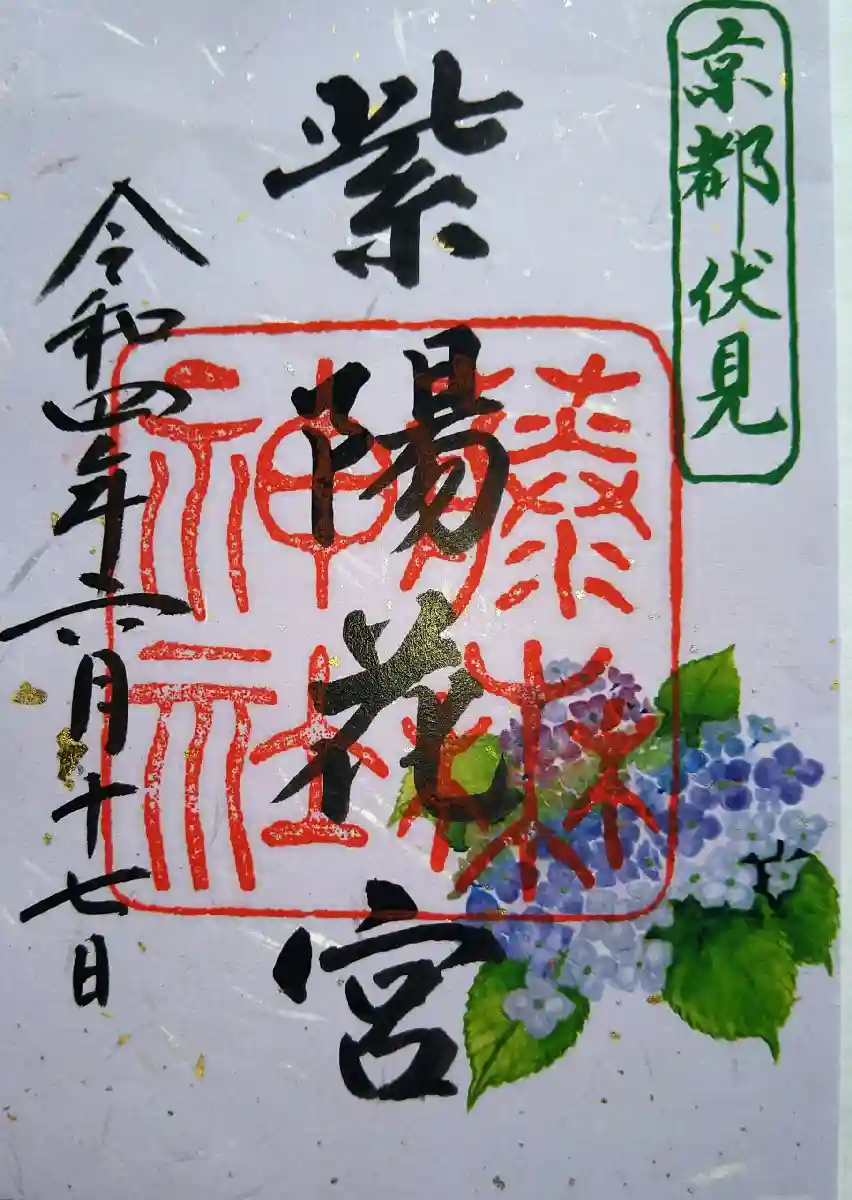 京都伏見
紫陽花宮
藤森神社
令和四年六月十七日